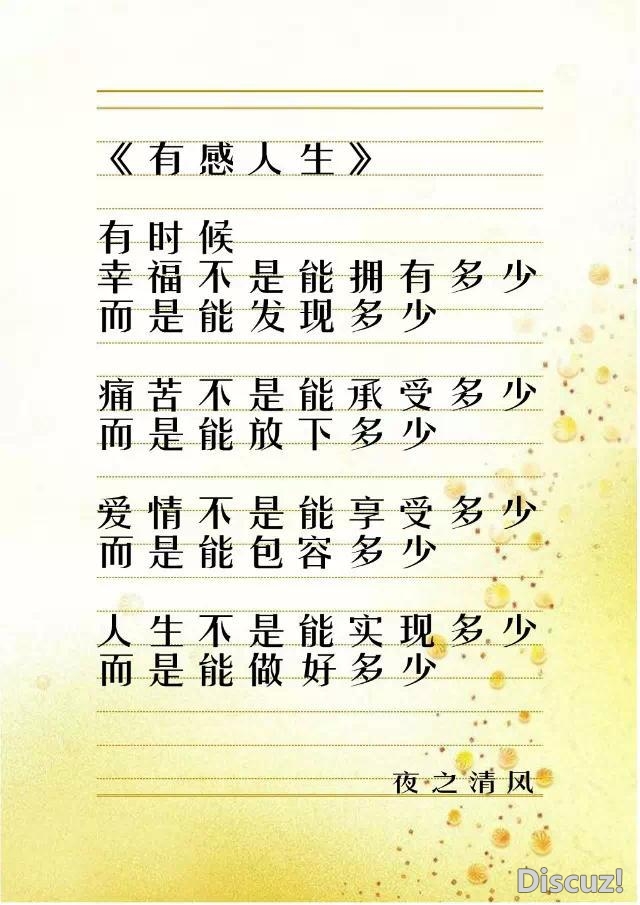 《有感人生》
有时候
幸福不是能拥有多少
而是能发现多少
痛苦不是能承受多少
而是能放下多少
爱情不是能享受多少
而是能包容多少
人生不是能实现多少
而是能做好多少
夜之清风
Discuz!